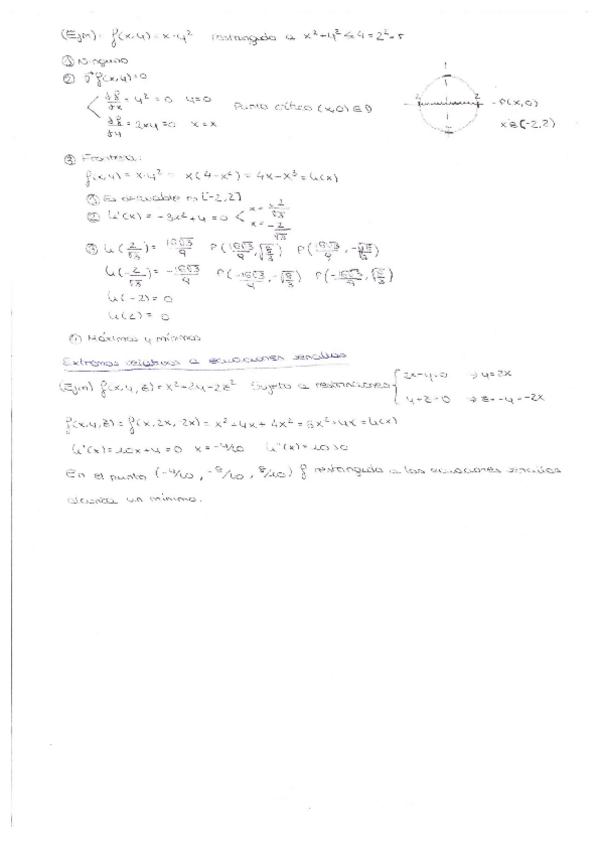 (Ejm). f(x,y) = x·y² restringido a x²+y² ≤ 4 = 2² = r
① Ninguno
② ∇f(x,y)=0
∂f/∂x = y² = 0 y=0
∂f/∂y = 2xy = 0 x=x
Punto crítico (x,0) ∈ D
2 2 P(x,0)
x ∈ (-2,2)
③ Frontera:
f(x,y) = x·y² = x(4-x²) = 4x-x³ = h(x)
① Es derivable en [-2,2]
② h'(x) = -3x²+4 = 0 < x = 2/√3
x = -2/√3
③ h(2/√3) = 16√3/9 P(16√3/9, √8/3) P(16√3/9, -√8/3)
h(-2/√3) = -16√3/9 P(-16√3/9, -√8/3) P(-16√3/9, √8/3)
h(-2) = 0
h(2) = 0
④ Máximos y mínimos
Extremos relativos a ecuaciones sencillas
(Ejm) f(x,y,z) = x²+2y-2z² Sujeto a restricciones { 2x-y=0 → y=2x
y+z=0 → z=-y=-2x
f(x,y,z) = f(x,2x,-2x) = x²+4x+4x² = 5x²+4x = h(x)
h'(x) = 10x+4 = 0 x = -4/10 h''(x) = 10 > 0
En el punto (-4/10, -8/10, 8/10) f restringido a las ecuaciones sencillas
alcanza un mínimo.